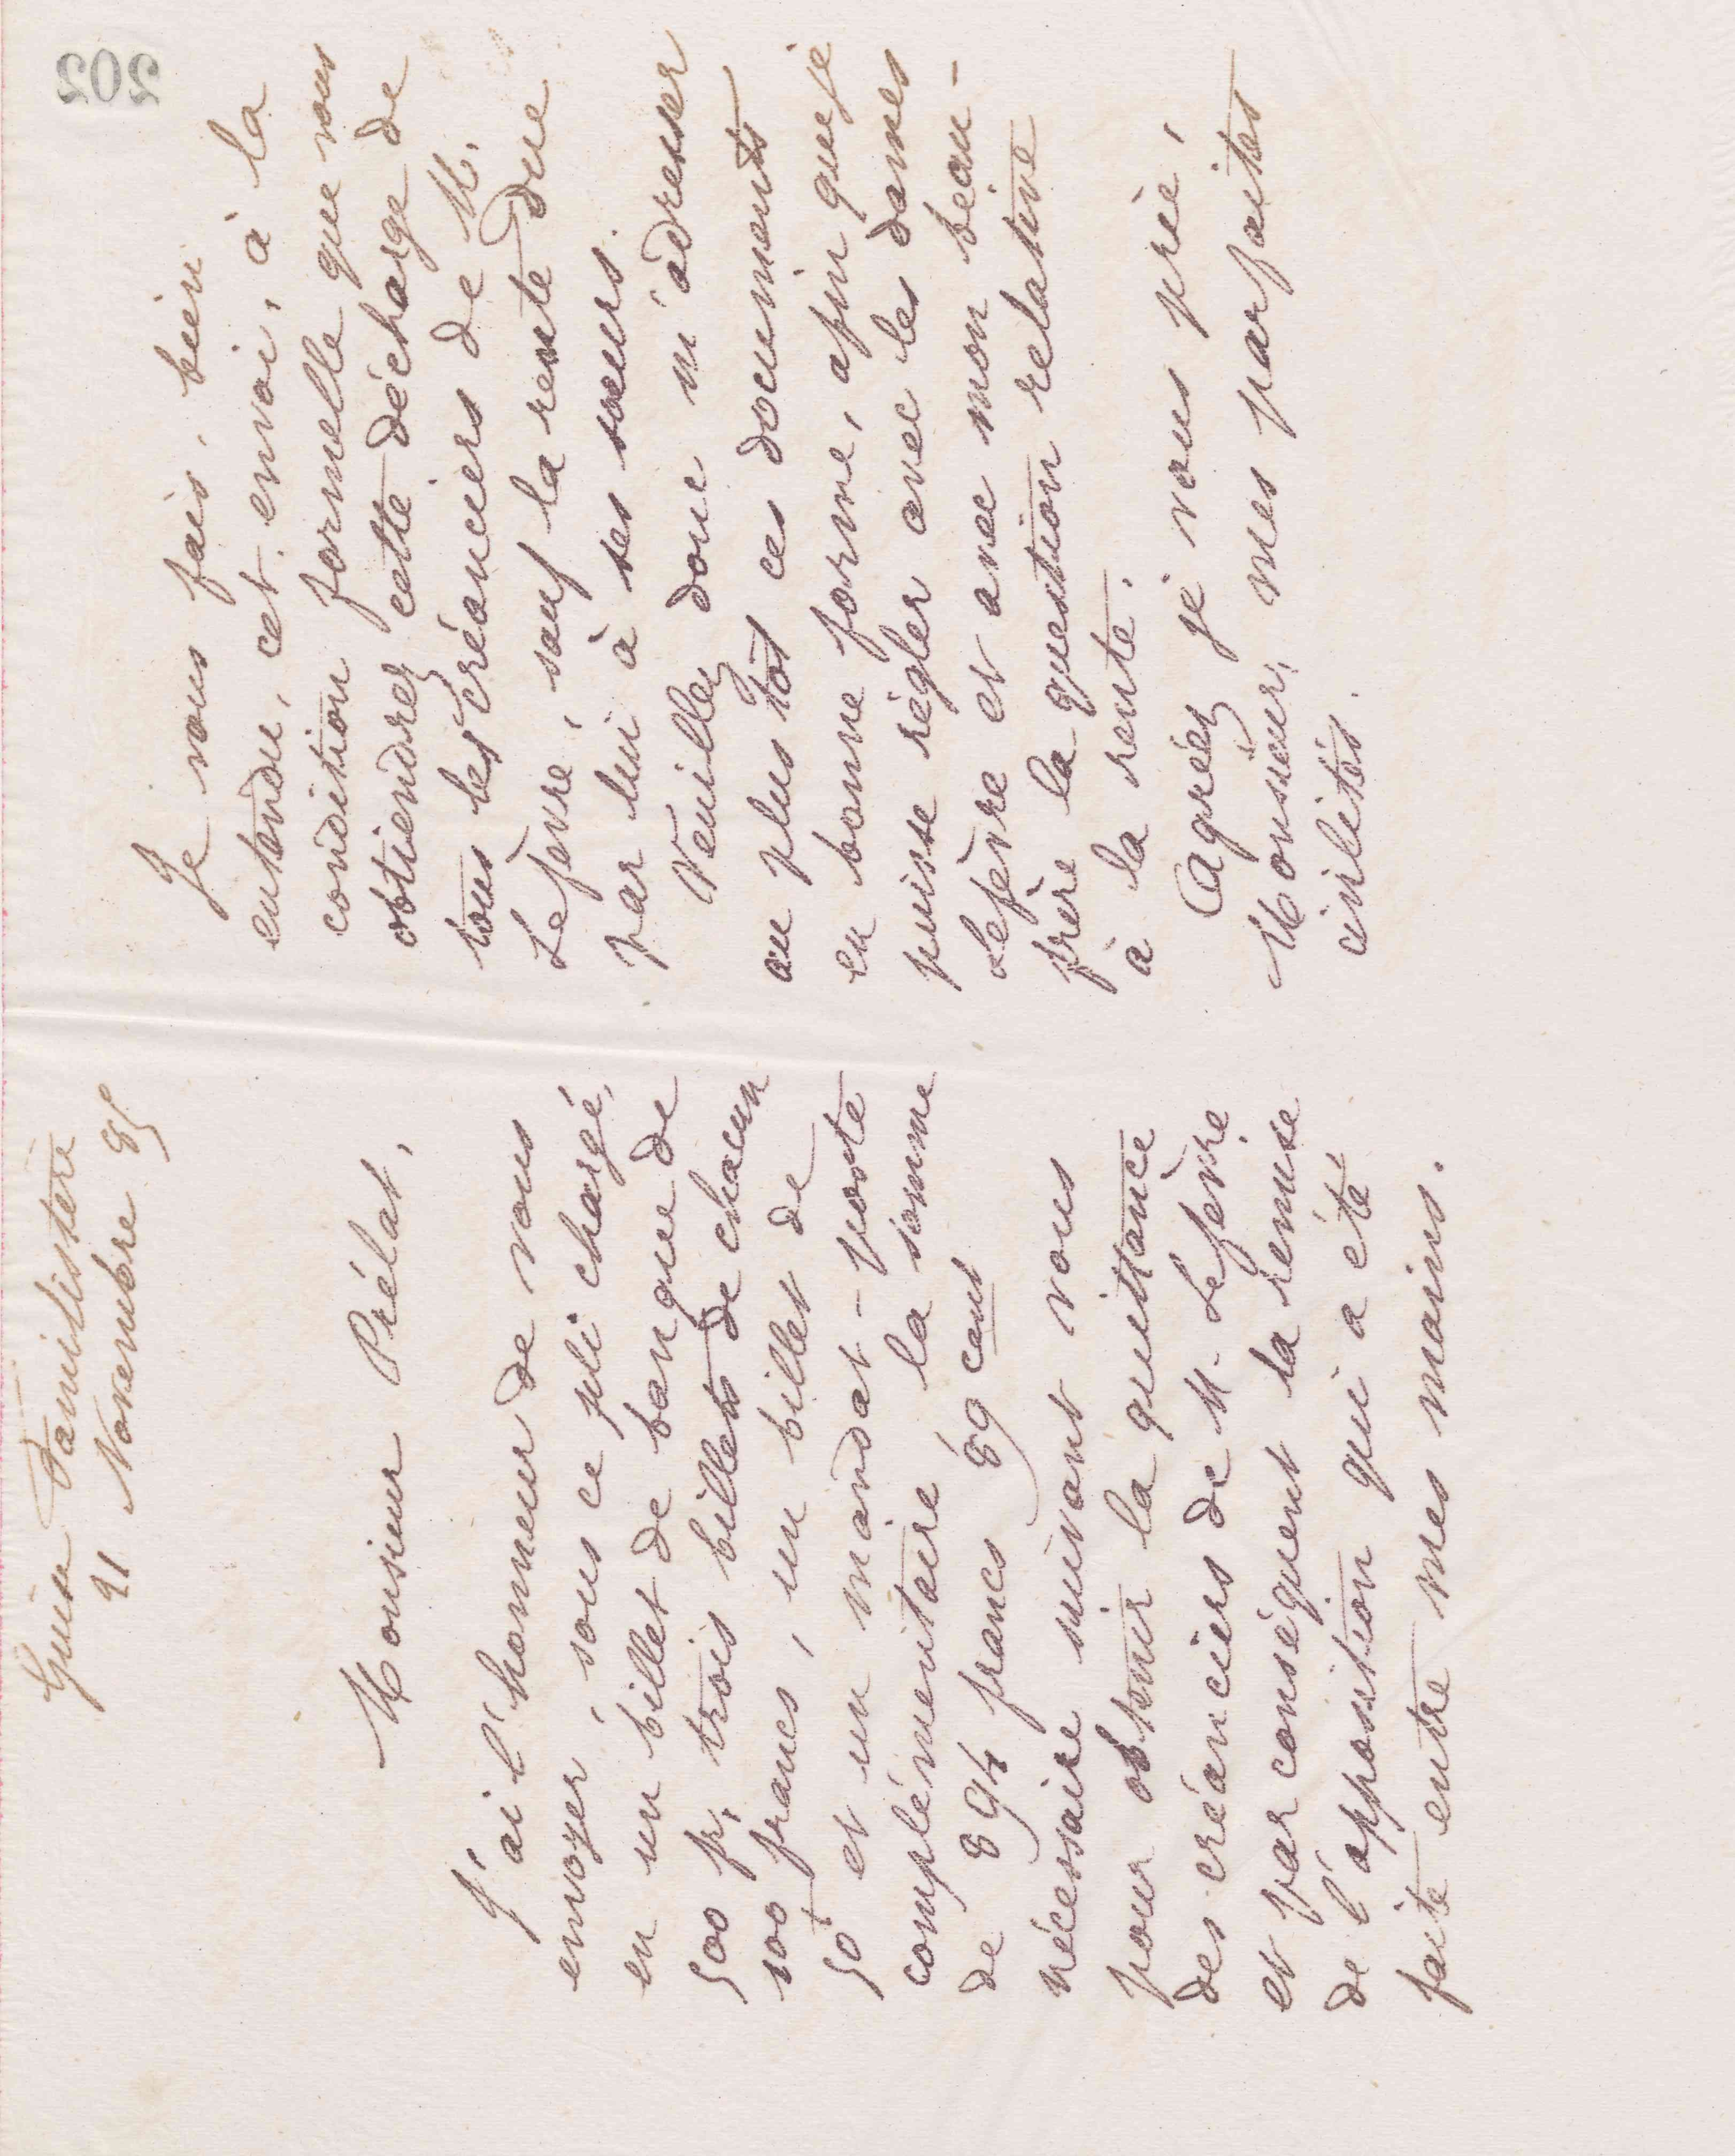 Guise Familistère
21 Novembre 85
Monsieur Prélat,
J'ai l'honneur de vous
envoyer, sous ce pli chargé,
en un billet de banque de
500 f, trois billets de chacun
100 francs, un billet de
50 et un mandat-poste
complémentaire la somme
de 894 francs 89 cent
nécessaire suivant vous
pour obtenir la quittance
des créanciers de M. Lefèvre
et par conséquent la remise
de l'opposition qui a été
faite entre mes mains.
202
Je vous fais, bien
entendu, cet envoi, à la
condition formelle que vous
obtiendrez cette décharge de
tous les créanciers de M.
Lefèvre, sauf la rente due
par lui à ses sœurs.
Veuillez donc m'adresser
au plus tôt ces documents
en bonne forme, afin que je
puisse régler avec les dames
Lefèvre et avec mon beau-
frère la question relative
à la rente.
Agréez je vous prie,
Monsieur, mes parfaites
civilités.